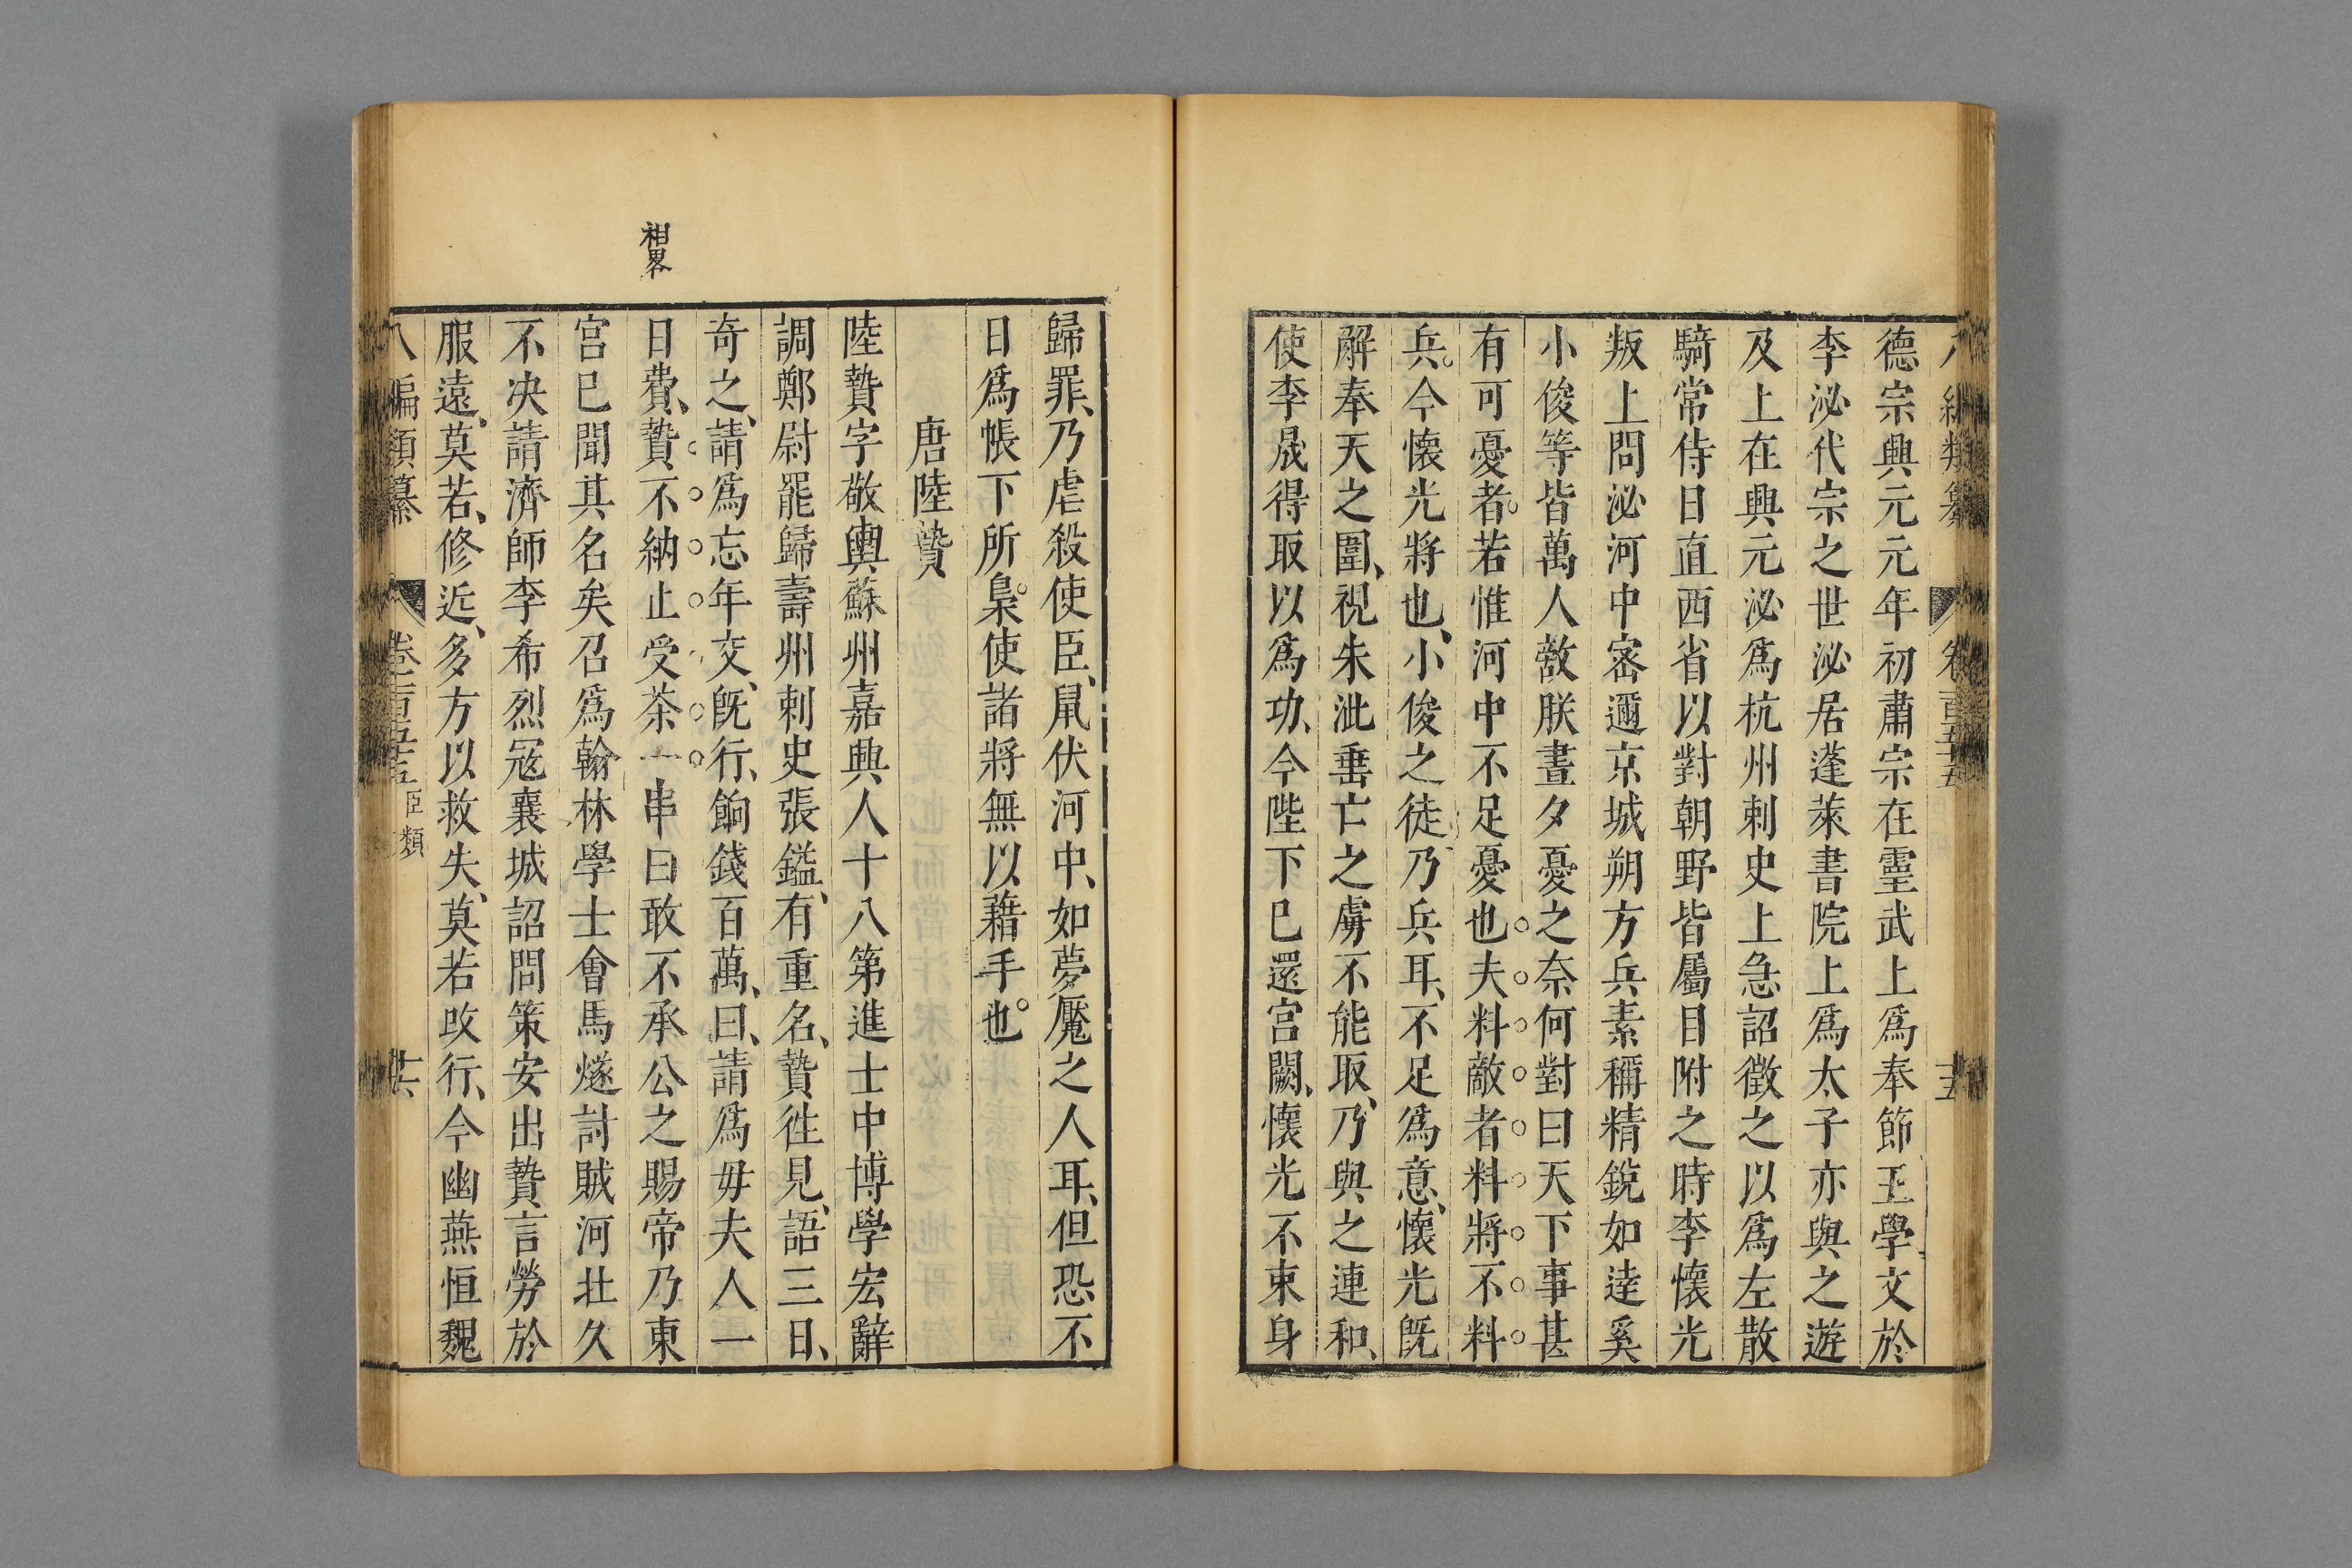 八編類纂 卷一百五十五 十五
德宗興元元年初肅宗在靈武上爲奉節王學文於
李泌代宗之世泌居蓬萊書院上爲太子亦與之遊
及上在興元泌爲杭州刺史上急詔徵之以爲左散
騎常侍日直西省以對朝野皆屬目附之時李懷光
叛上問泌河中密邇京城朔方兵素稱精銳如逹奚
小俊等皆萬人敵朕晝夕憂之奈何對曰天下事甚
有可憂者。若惟河中不足憂也夫料敵者料將不料
兵。今懷光將也、小俊之徒乃兵耳、不足爲意、懷光旣
解奉天之圍、視朱泚垂亡之虜不能取、乃與之連和、
使李晟得取以爲功、今陛下已還宮闕、懷光不束身
歸罪、乃虐殺使臣、鼠伏河中、如夢魘之人耳、但恐不
日爲帳下所梟。使諸將無以藉手也。
唐陸贄
陸贄字敬輿蘇州嘉興人十八第進士中博學宏辭
調鄭尉罷歸壽州刺史張鎰、有重名、贄徃見、語三日、
奇之、請爲忘年交、旣行、餉錢百萬、曰、請爲毋夫人一
日費、贄不納止受茶一串曰敢不承公之賜帝乃東
宮已聞其名矣召爲翰林學士會馬燧討賊河北久
不决請濟師李希烈寇襄城詔問策安出贄言勞於
服遠、莫若、修近、多方以救失、莫若改行、今幽燕恒魏
相畧
八編類纂 卷一百五十五 臣類 十六